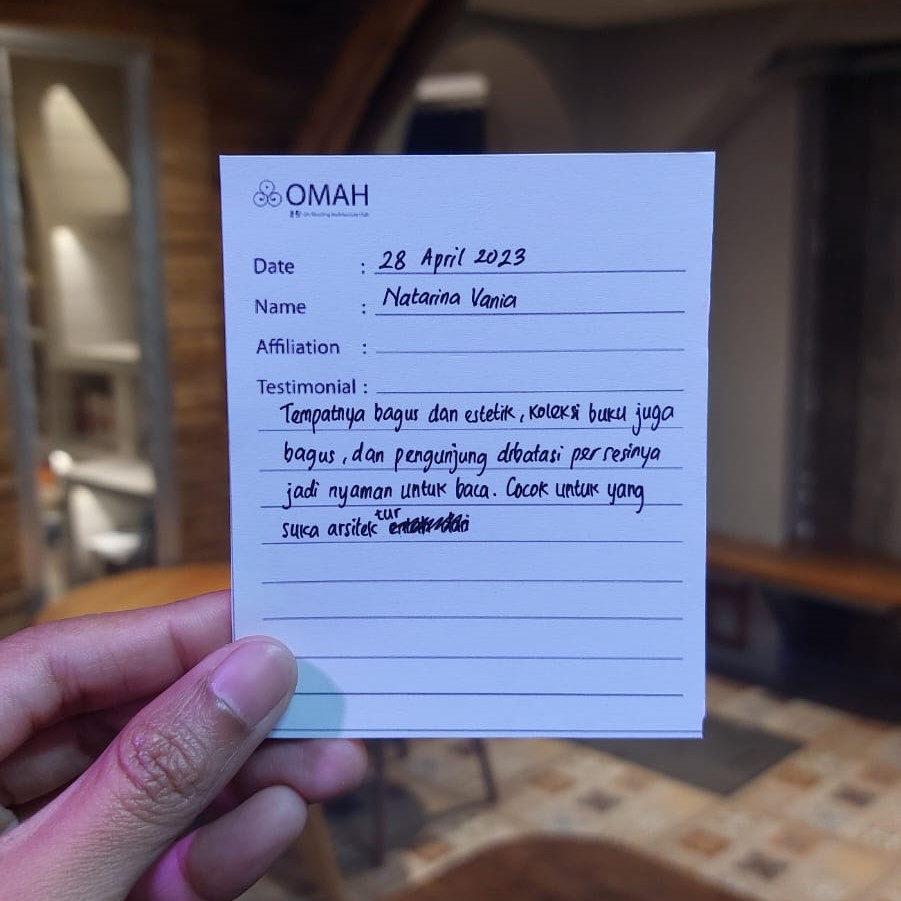 OMAH
Date : 28 April 2023
Name : Natarina Vania
Affiliation :
Testimonial :
Tempatnya bagus dan estetik, koleksi buku juga
bagus, dan pengunjung dibatasi per resinya
jadi nyaman untuk baca. Cocok untuk yang
suka arsitektur